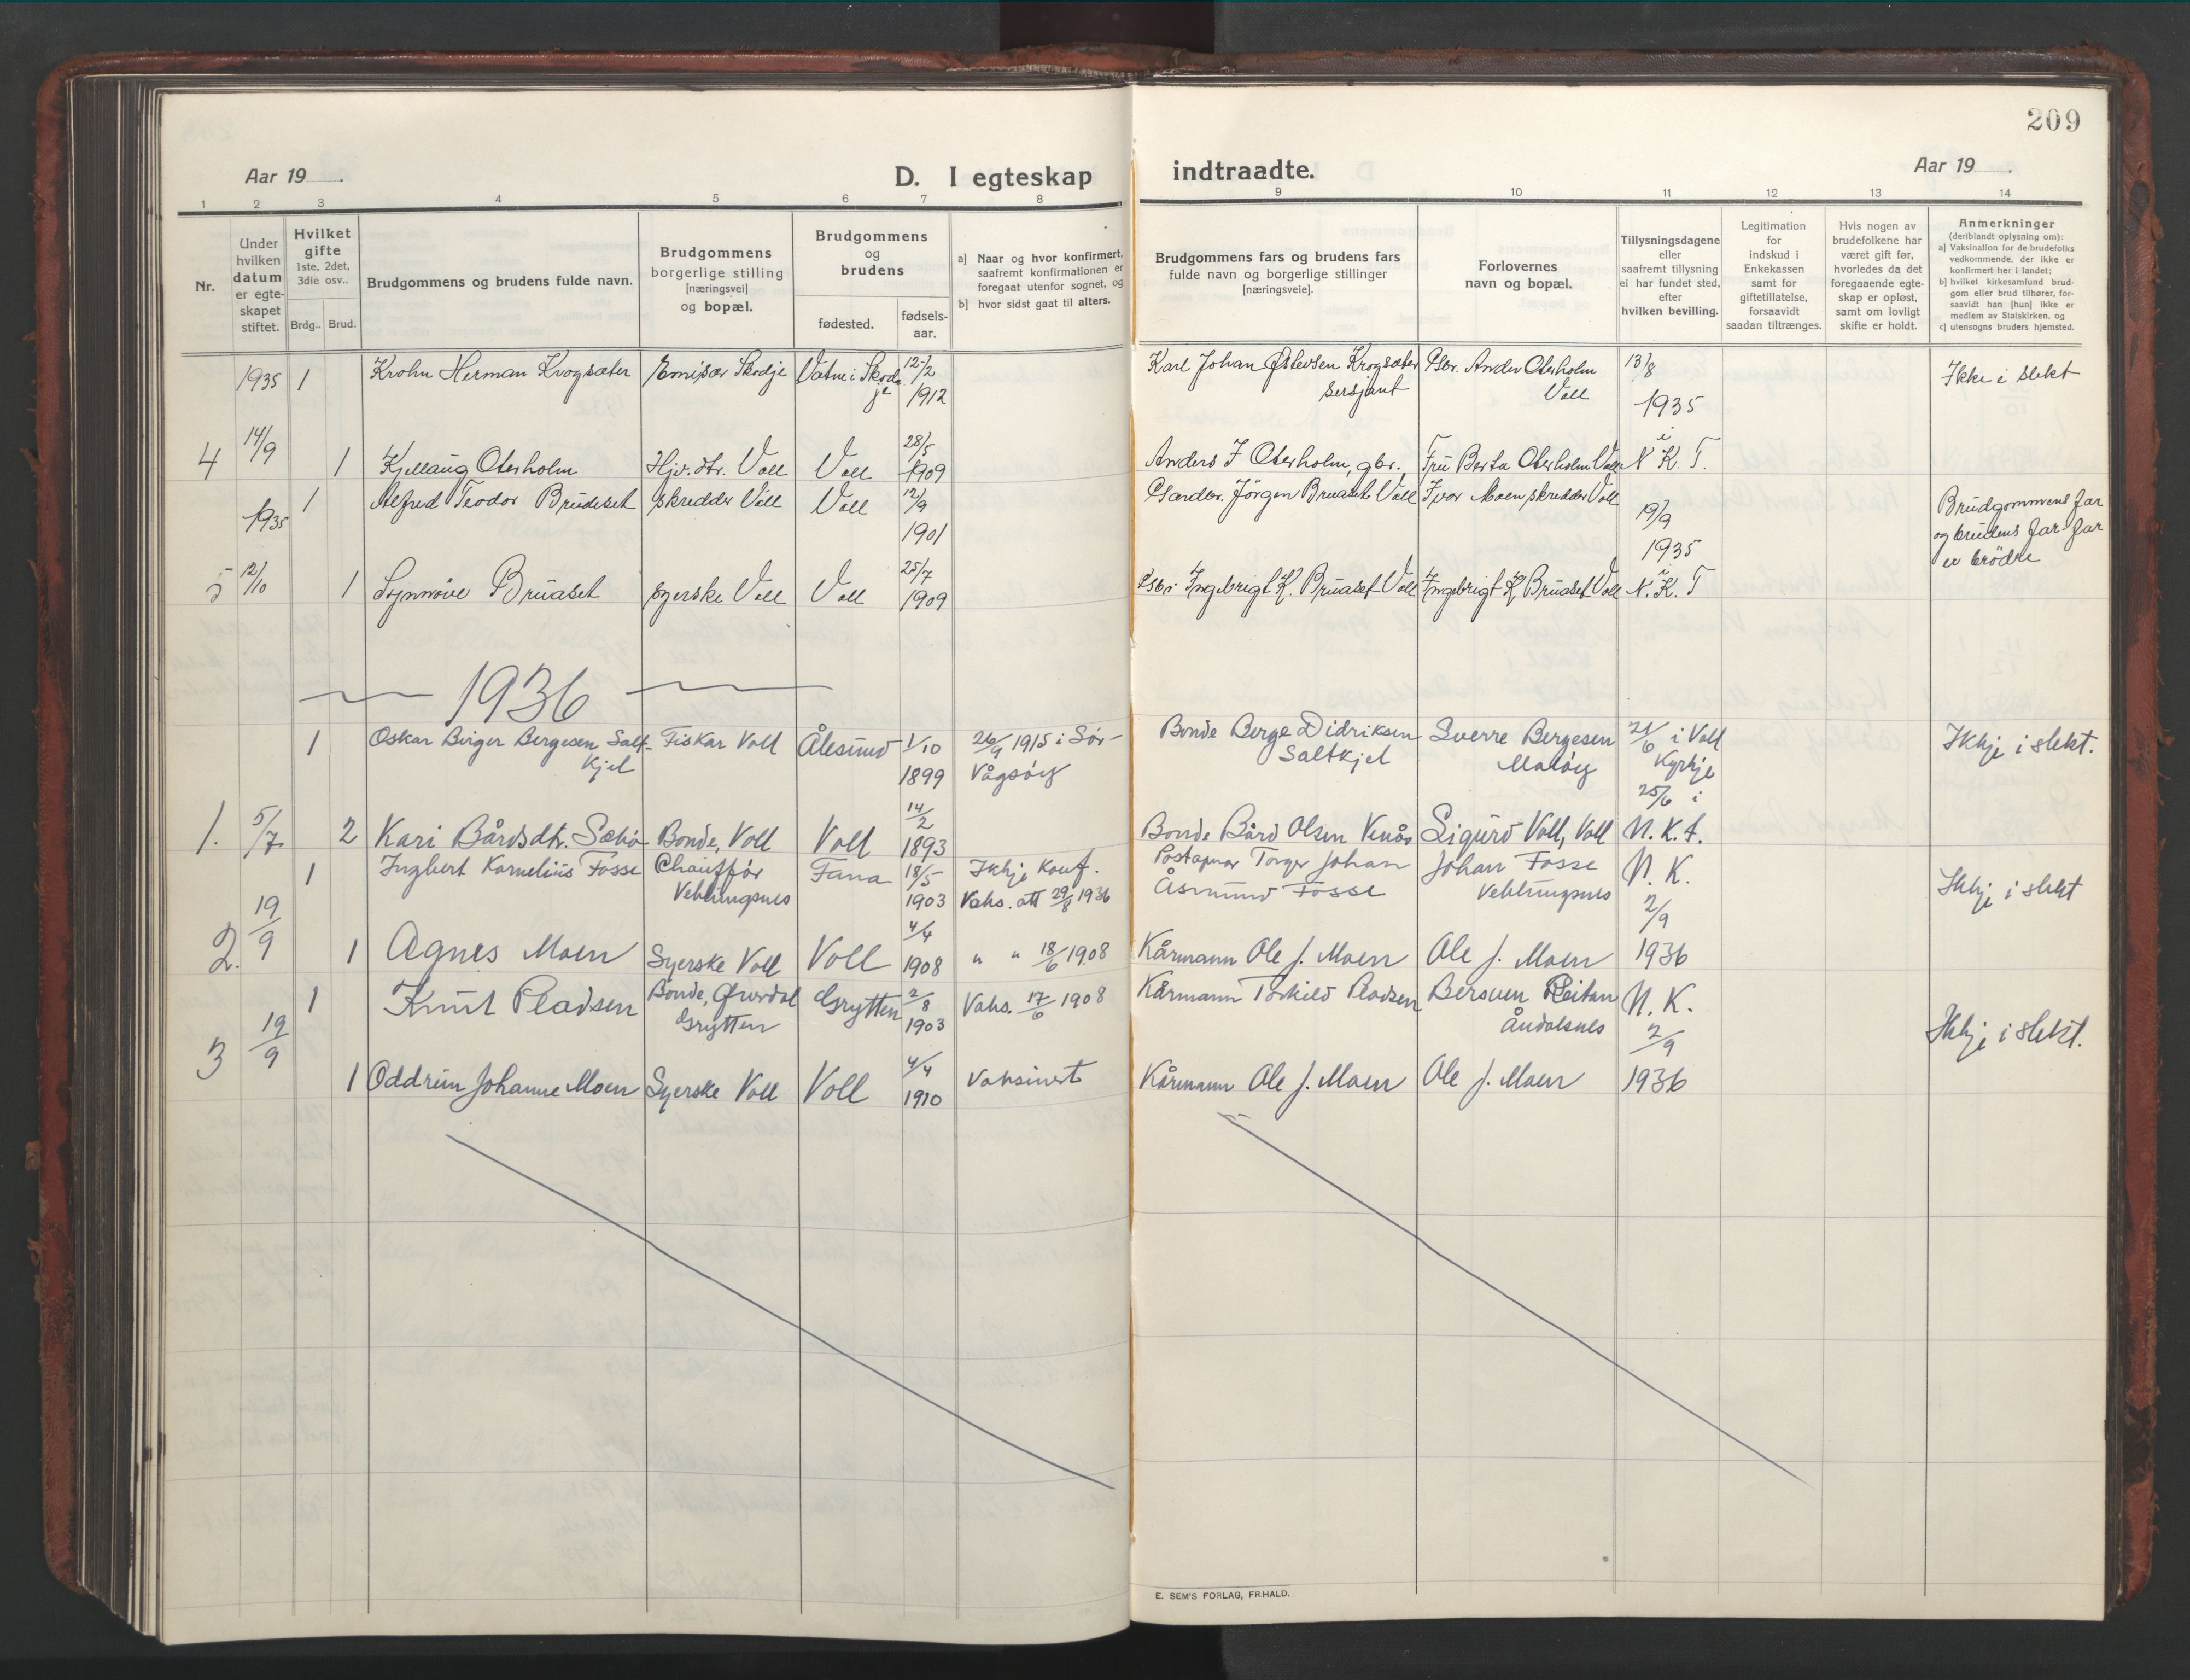 209
Aar 19 .
D. I egteskap indtraadte.
Aar 19 .
1 2 3 4 5 6 7 8 9 10 11 12 13 14
Nr.
Under hvilken datum er egte-skapet stiftet.
Hvilket gifte 1ste, 2det, 3die osv..
Brdg.. Brud.
Brudgommens og brudens fulde navn.
Brudgommens borgerlige stilling [næringsvei] og bopæl.
Brudgommens og brudens
fødested. fødsels-aar.
a] Naar og hvor konfirmert, saafremt konfirmationen er foregaat utenfor sognet, og
b] hvor sidst gaat til alters.
Brudgommens fars og brudens fars fulde navn og borgerlige stillinger [næringsveie].
Forlovernes navn og bopæl.
Tillysningsdagene eller saafremt tillysning ei har fundet sted, efter hvilken bevilling.
Legitimation for indskud i Enkekassen samt for giftetillatelse, forsaavidt saadan tiltrænges.
Hvis nogen av brudefolkene har været gift før, hvorledes da det foregaaende egte-skap er opløst, samt om lovligt skifte er holdt.
Anmerkninger
(deriblandt oplysning om):
a] Vaksination for de brudefolks vedkommende, der ikke er konfirmert her i landet;
b] hvilket kirkesamfund brud-gom eller brud tilhører, for-saavidt han [hun] ikke er medlem av Statskirken, og
c] utensogns bruders hjemsted.
1935 1 Krohn Herman Krogsæter Emisær Skodje Vatne i Skodje 12/2 1912 Karl Johan Østevsen Krogsæter sersjant Gbr. Anders Oterholm Voll 13/8 1935 Ikke i slekt
4 14/9 1 Kjellaug Oterholm Hjv. dtr. Voll Voll 28/5 1909 Anders J Oterholm, gbr. Fru Berta Oterholm Voll i N. K. T.
1935 1 Alfred Teodor Brudeset skredder Voll Voll 12/9 1901 Gardbr. Jörgen Bruaset Voll Ivar Moen skredder Voll 19/9 1935 Brudgommens far og brudens far-far er brödre
5 12/10 1 Synnöve Bruaset syerske Voll Voll 25/7 1909 Gbr. Ingebrigt K. Bruaset Voll Ingebrigt K Bruaset Voll i N. K. T
1936
1 Oskar Birger Bergesen Salt-kjel Fiskar Voll Ålesund 1/10 1899 26/9 1915 i Sör-Vågsöy Bonde Berge Didriksen Saltkjel Sverre Bergesen Malöy 21/6 i Voll Kyrkje
1. 5/7 2 Kari Bårdsdtr. Sæbö Bonde, Voll Voll 14/2 1893 Bonde Bård Olsen Venås Sigurd Voll, Voll 25/6 i N. K. t.
1 Ingbert Kornelius Fosse Chaufför Veblungsnes Fana 18/5 1903 Ikkje konf. Vaks. att 29/8 1936 Postopnar Torger Johan Åsmund Fosse Johan Fosse Veblungsnes N. K. 2/9 Ikkje i slekt
2. 19/9 1 Agnes Moen Syerske Voll Voll 4/4 1908 " " 18/6 1908 Kårmann Ole J. Moen Ole J. Moen 1936
1 Knut Pladsen Bonde, Grytten Grytten 2/8 1903 Vaks. 17/6 1908 Kårmann Torkild Pladsen Bersven Reitan Åndalsnes N. K. 2/9 Ikkje i slekt.
3 19/9 1 Oddrun Johanne Moen Syerske Voll Voll 4/4 1910 Vaksinert Kårmann Ole J. Moen Ole J. Moen 1936
E. SEM'S FORLAG, FR.HALD.